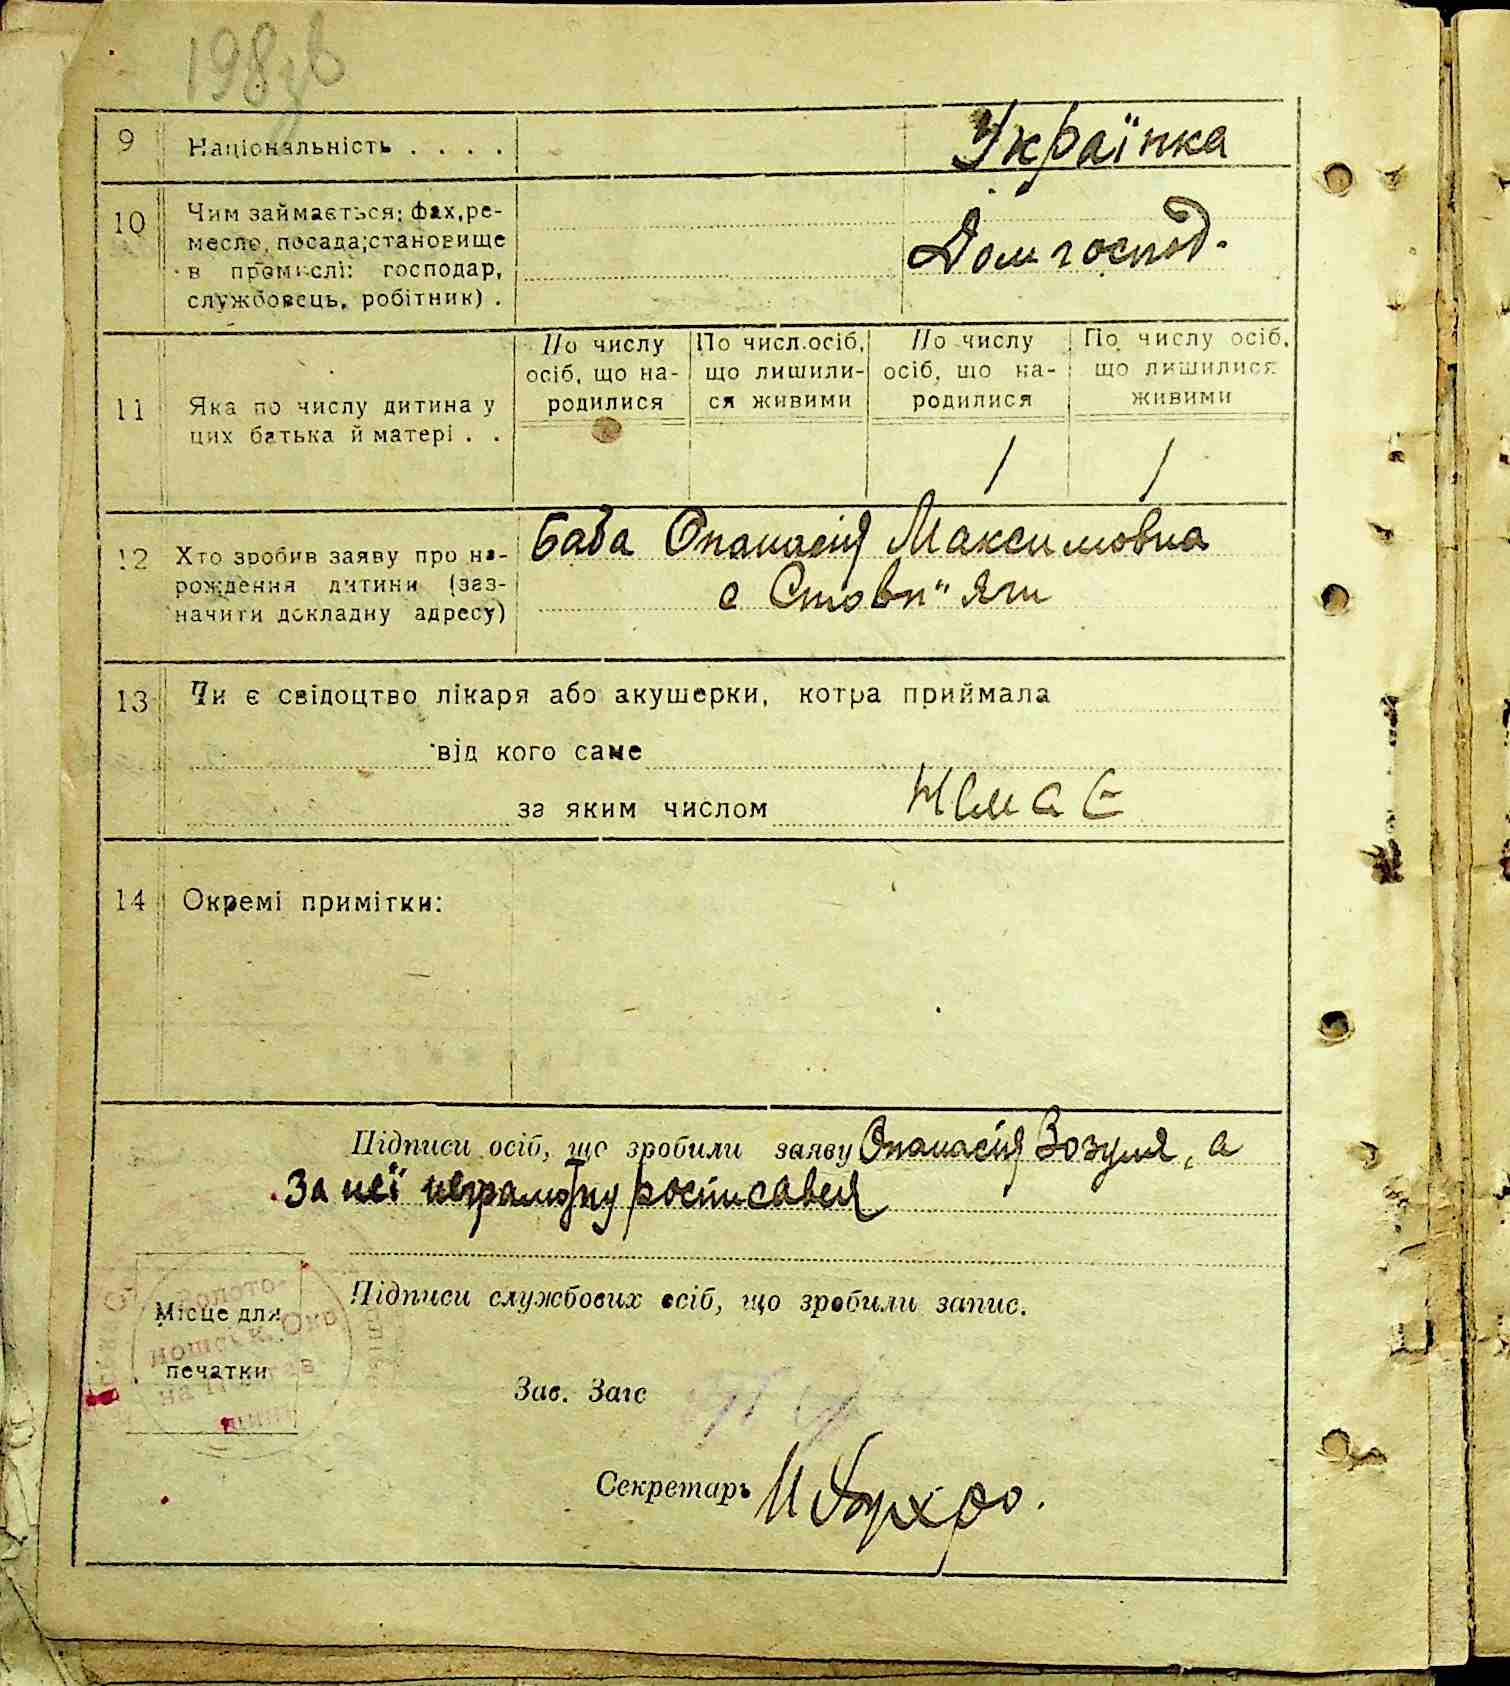 198зв
9 Національність . . . . Українка
10 Чим займається; фах, ре-
месло, посада; становище
в промислі: господар,
службовець, робітник) .
Дом господ.
По числу осіб, що на-родилися По числ.осіб, що лишили-ся живими По числу осіб, що на-родилися По числу осіб, що лишилися живими
11 Яка по числу дитина у
цих батька й матері . .
1 1
12 Хто зробив заяву про на-
рождення дитини (заз-
начити докладну адресу)
баба Опанасія Максимовна
с Стовп"яги
13 Чи є свідоцтво лікаря або акушерки, котра приймала
від кого саме
за яким числом Немає
14 Окремі примітки:
Підписи осіб, що зробили заяву Опанасія Зозуля, а
за неї неграмотну росписався
Місце для
печатки
Підписи службових осіб, що зробили запис.
Зав. Загс
Секретарь